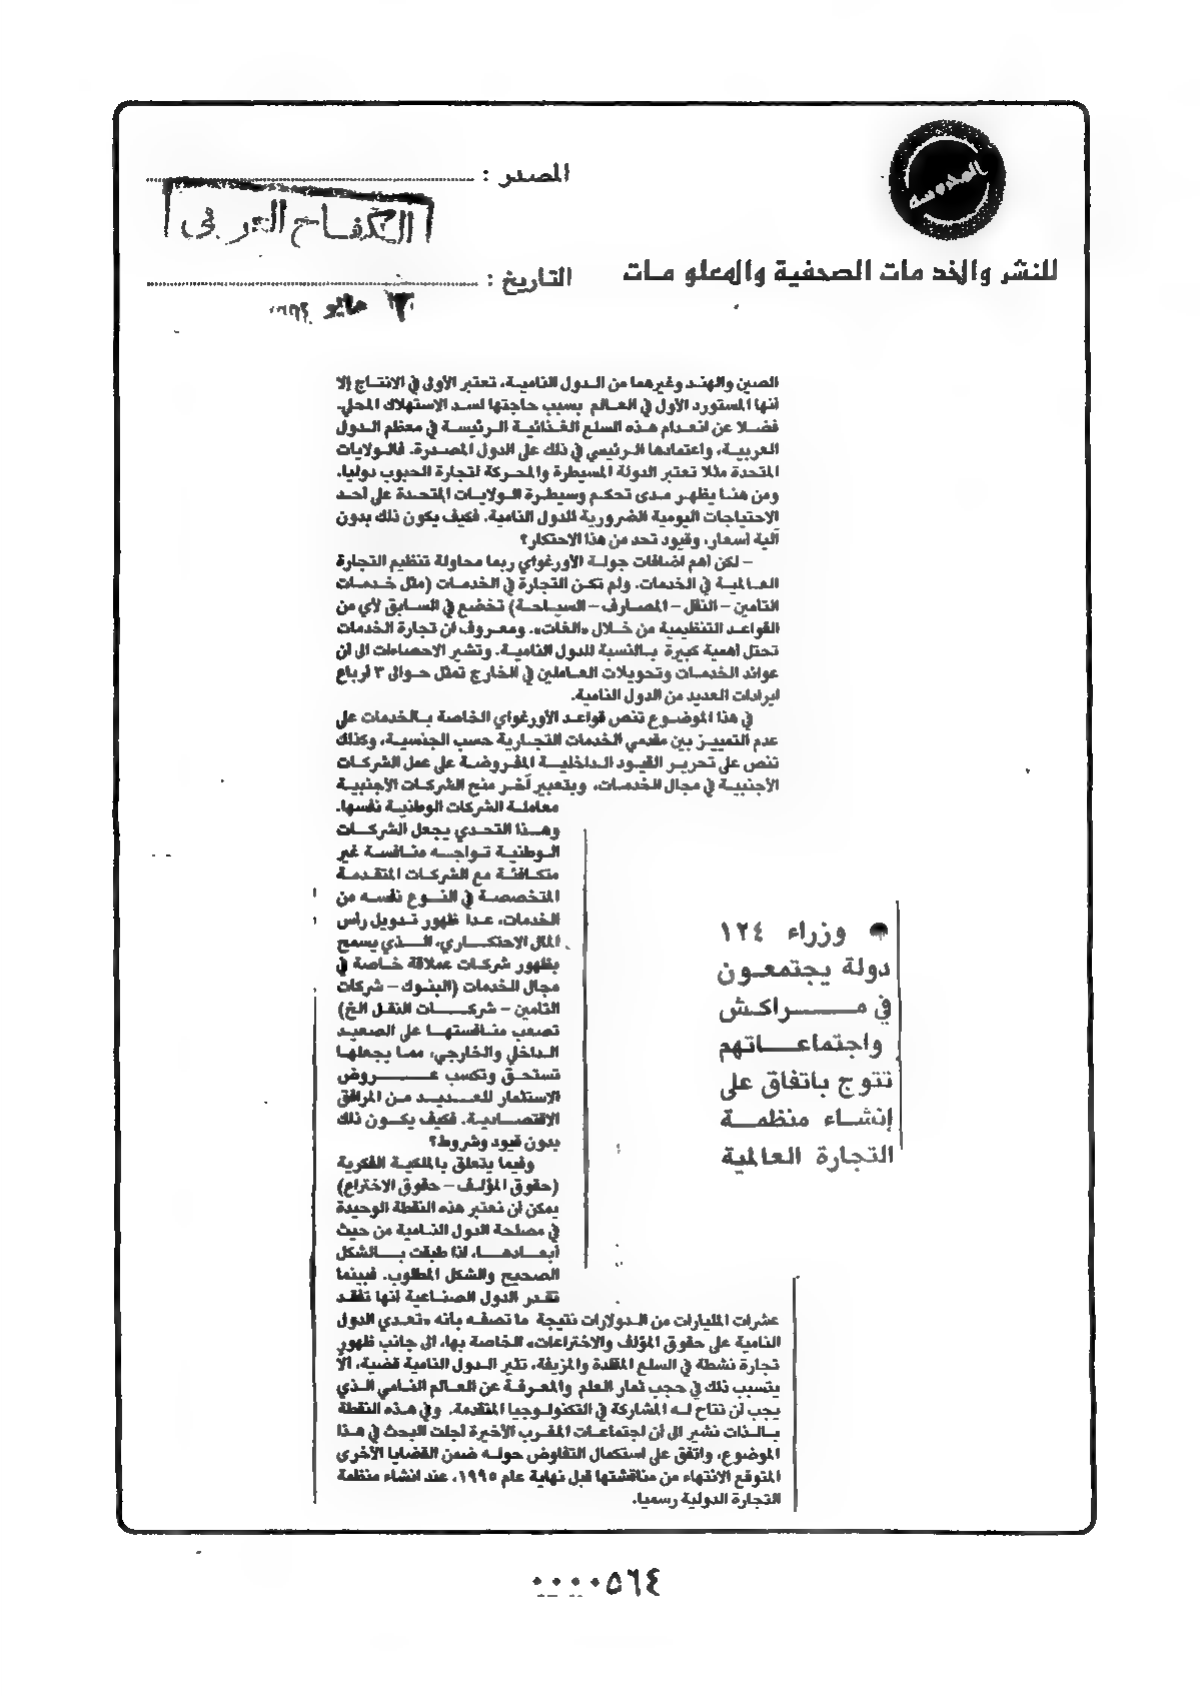 المدوسه
للنشر والخدمات الصحفية والمعلومات
المصدر :
الكفاح العربي
التاريخ :
مايو
الصين والهند وغيرهما من الدول النامية، تعتبر الأولى في الانتاج إلا
أنها المستورد الأول في العالم بسبب حاجتها لسد الاستهلاك المحلي.
فضلا عن انعدام هذه السلع الغذائية الرئيسة في معظم الدول
العربية، واعتمادها الرئيسي في ذلك على الدول المصدرة. فالولايات
المتحدة مثلا تعتبر الدولة المسيطرة والمحركة لتجارة الحبوب دوليا.
ومن هنا يظهر مدى تحكم وسيطرة الولايات المتحدة على أحد
الاحتياجات اليومية الضرورية للدول النامية. فكيف يكون ذلك بدون
آلية أسعار، وقيود تحد من هذا الاحتكار؟
– لكن أهم اضافات جولة الأورغواي ربما محاولة تنظيم التجارة
العالمية في الخدمات. ولم تكن التجارة في الخدمات (مثل خدمات
التأمين – النقل – المصارف – السياحة) تخضع في السابق لأي من
القواعد التنظيمية من خلال «الغات». ومعروف ان تجارة الخدمات
تحتل أهمية كبيرة بالنسبة للدول النامية. وتشير الاحصاءات الى أن
عوائد الخدمات وتحويلات العاملين في الخارج تمثل حوالى ٣ أرباع
ايرادات العديد من الدول النامية.
في هذا الموضوع تنص قواعد الأورغواي الخاصة بالخدمات على
عدم التمييز بين مقدمي الخدمات التجارية حسب الجنسية، وكذلك
تنص على تحرير القيود الداخلية المفروضة على عمل الشركات
الأجنبية في مجال الخدمات، وبتعبير آخر منح الشركات الأجنبية
معاملة الشركات الوطنية نفسها.
وهذا التحدي يجعل الشركات
الوطنية تواجه منافسة غير
متكافئة مع الشركات المتقدمة
المتخصصة في النوع نفسه من
الخدمات، عدا ظهور تدويل رأس
المال الاحتكاري، الذي يسمح
بظهور شركات عملاقة خاصة في
مجال الخدمات (البنوك – شركات
التأمين – شركات النقل الخ)
تصعب منافستها على الصعيد
الداخلي والخارجي، مما يجعلها
تستحق وتكسب عروض
الاستثمار للعديد من المرافق
الاقتصادية. فكيف يكون ذلك
بدون قيود وشروط؟
وفيما يتعلق بالملكية الفكرية
(حقوق المؤلف – حقوق الاختراع)
يمكن أن نعتبر هذه النقطة الوحيدة
في مصلحة الدول النامية من حيث
أبعادها، اذا طبقت بالشكل
الصحيح والشكل المطلوب. فبينما
تقدر الدول الصناعية أنها تفقد
عشرات المليارات من الدولارات نتيجة ما تصفه بأنه «تعدي الدول
النامية على حقوق المؤلف والاختراعات» الخاصة بها، الى جانب ظهور
تجارة نشطة في السلع المقلدة والمزيفة، تثير الدول النامية قضية، ألا
يتسبب ذلك في حجب ثمار العلم والمعرفة عن العالم النامي الذي
يجب أن تتاح له المشاركة في التكنولوجيا المتقدمة. وفي هذه النقطة
بالذات نشير الى أن اجتماعات المغرب الأخيرة أجلت البحث في هذا
الموضوع، واتفق على استكمال التفاوض حوله ضمن القضايا الأخرى
المتوقع الانتهاء من مناقشتها قبل نهاية عام ١٩٩٥، عند انشاء منظمة
التجارة الدولية رسميا.
● وزراء ١٢٤
دولة يجتمعون
في مراكش
واجتماعاتهم
تتوج باتفاق على
إنشاء منظمة
التجارة العالمية
٠٠٠٠٥٦٤